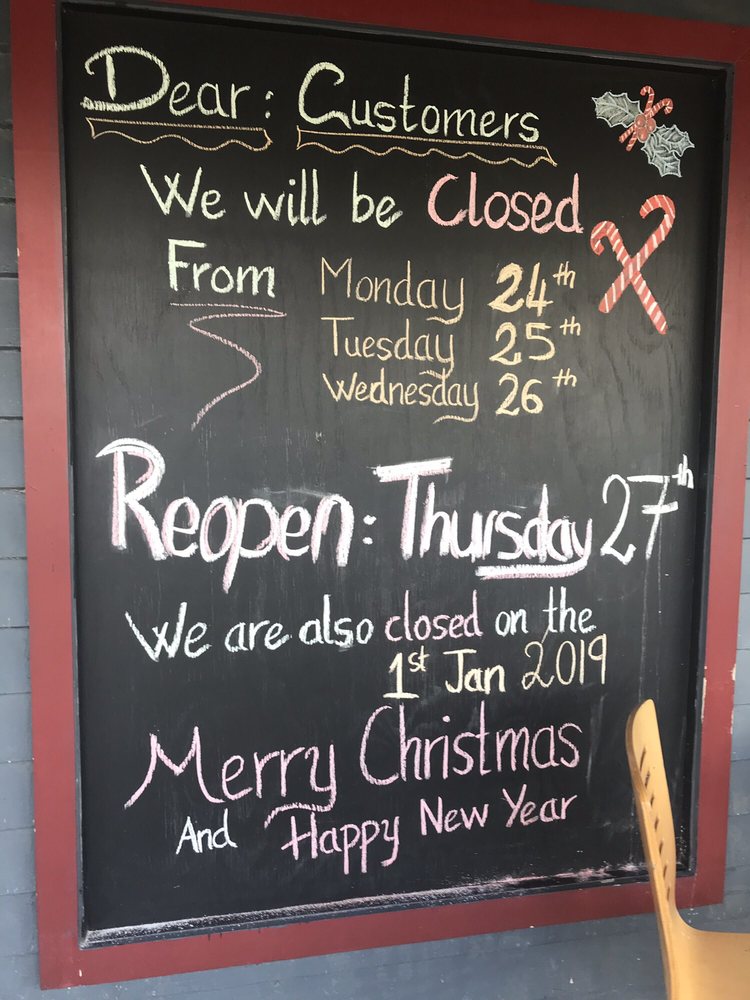 Dear: Customers
We will be Closed
From Monday 24th
Tuesday 25th
Wednesday 26th
Reopen: Thursday 27th
We are also closed on the
1st Jan 2019
Merry Christmas
And Happy New Year